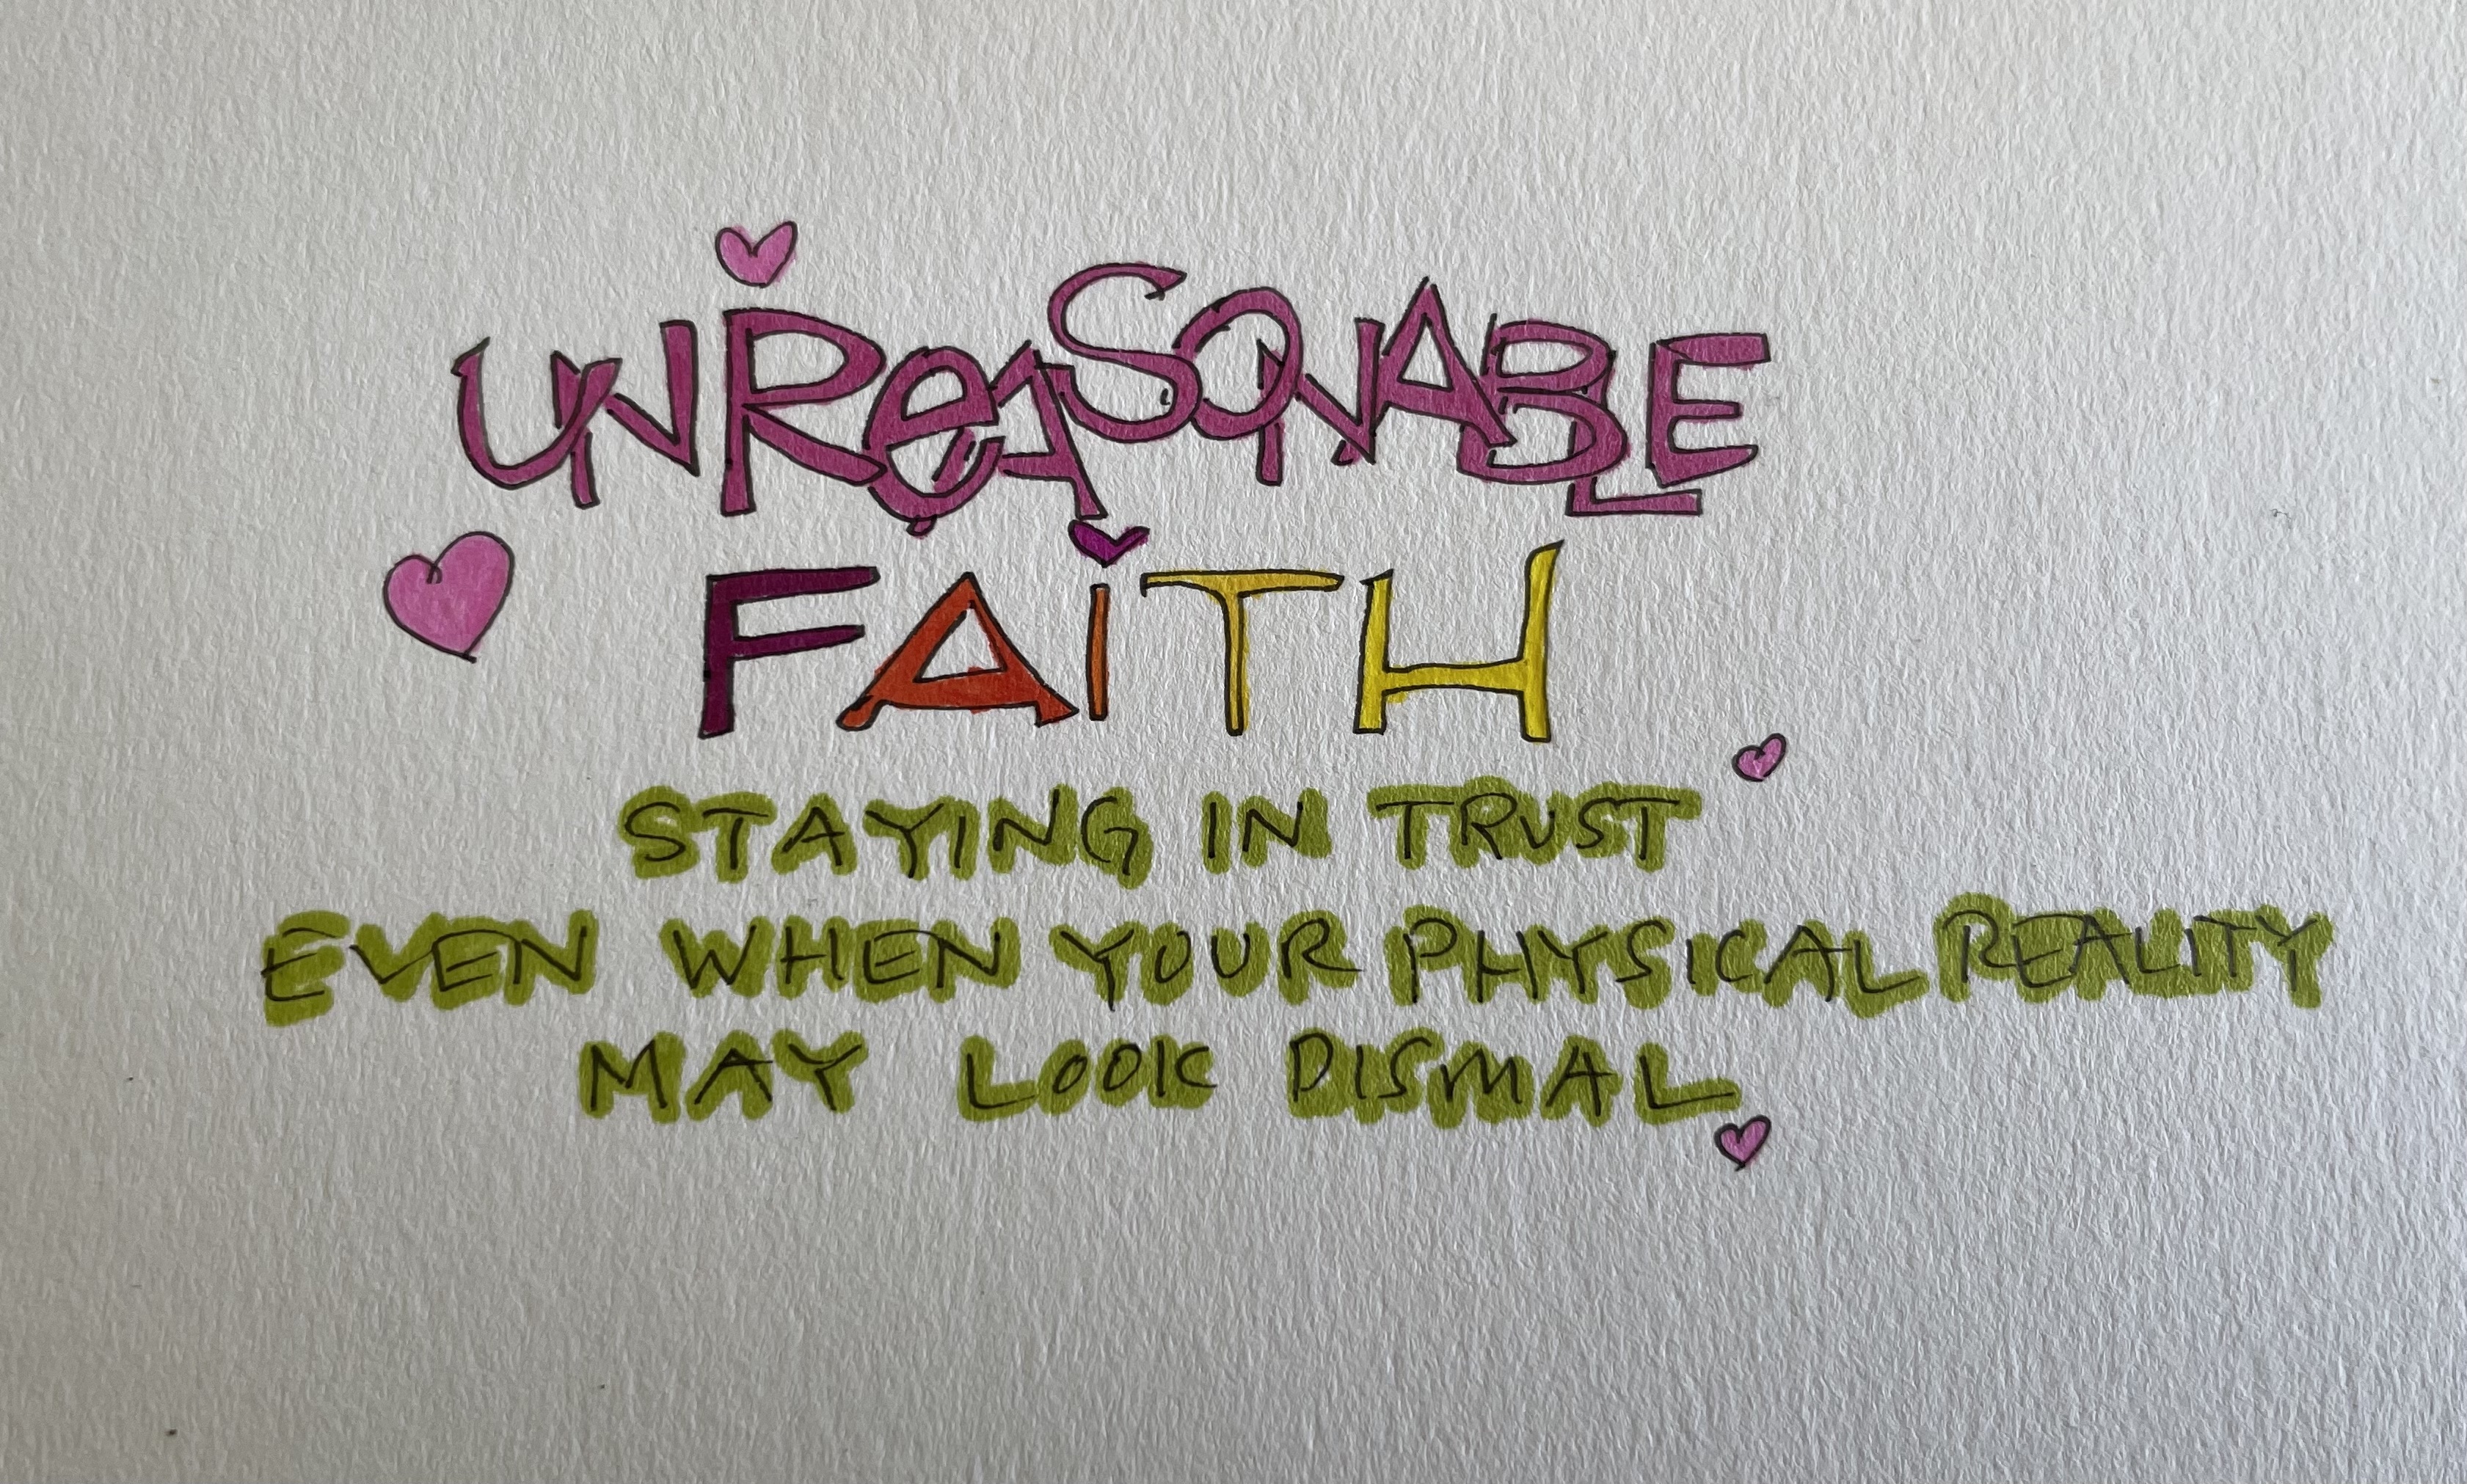 UNReASONABLE
FAiTH
STAYING IN TRUST
EVEN WHEN YOUR PHYSICAL REALITY
MAY LOOK DISMAL